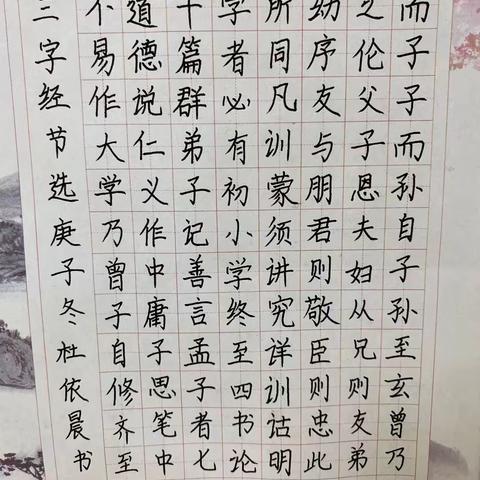 而子子而孙自子孙至玄曾乃
之伦父子恩夫妇从兄则友弟
幼序友与朋君则敬臣则忠此
所同凡训蒙须讲究详训诂明
学者必有初小学终至四书论
十篇群弟子记善言孟子者七
道德说仁义作中庸子思笔中
不易作大学乃曾子自修齐至
三字经节选庚子冬杜依晨书